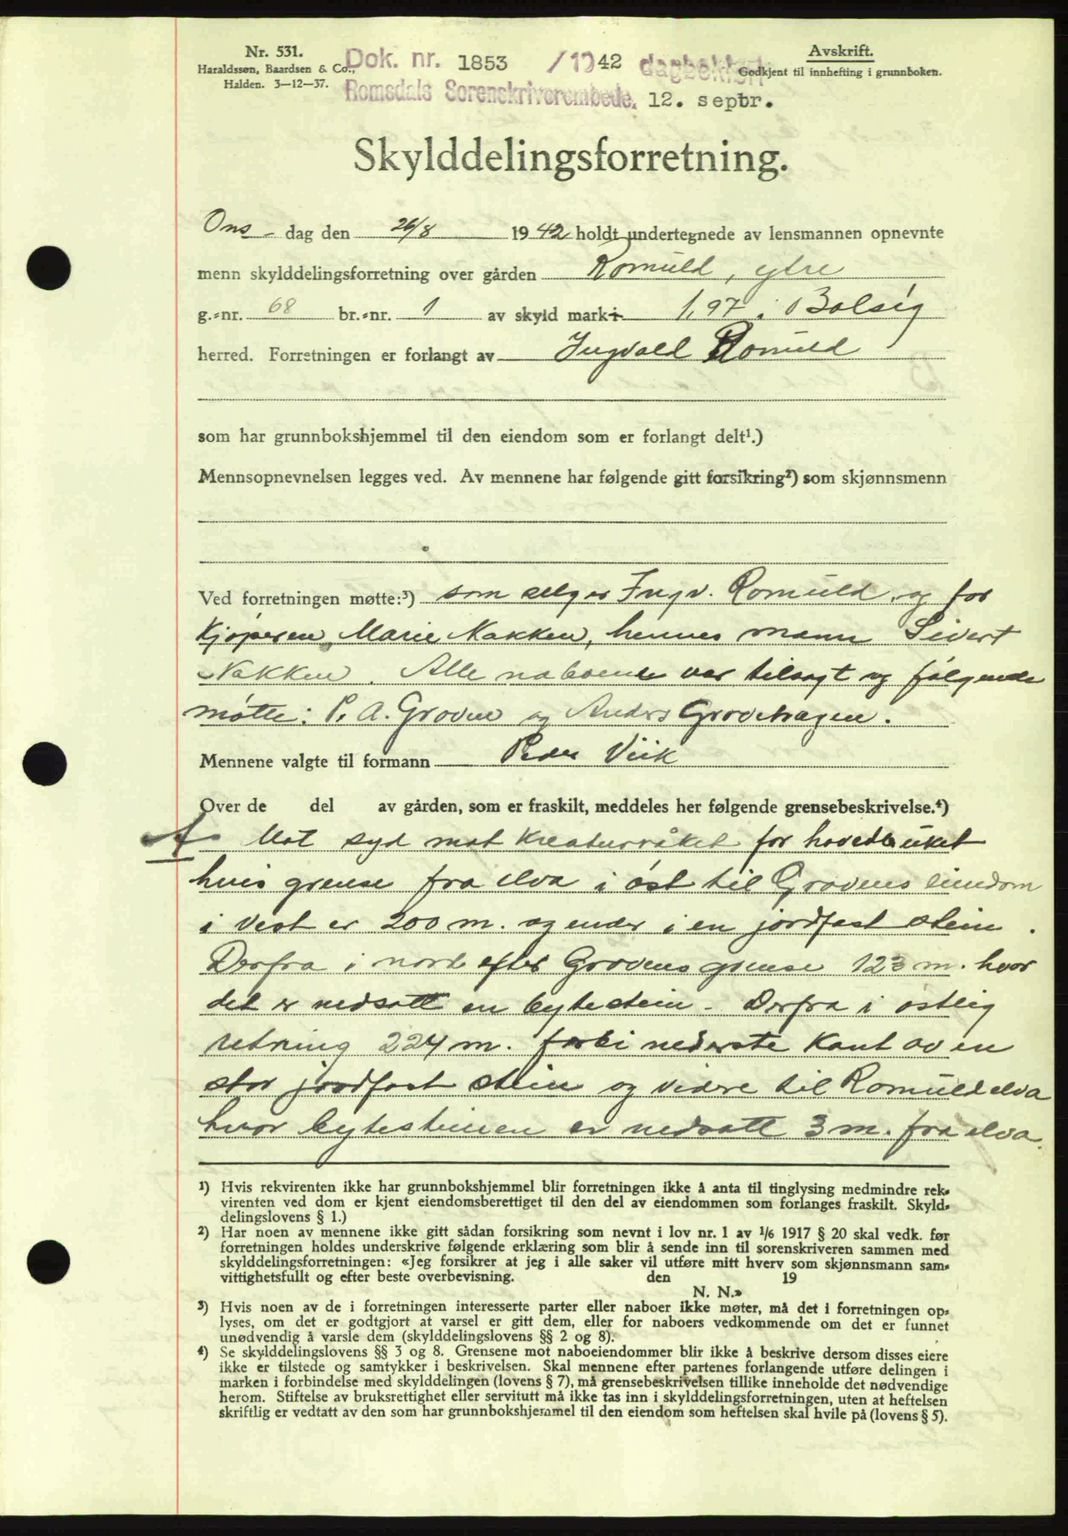 Nr. 531.
Haraldssen, Baardsen & Co.,
Halden. 3-12-37.
Dok. nr. 1853 /1942 dagbokført
Romsdals Sorenskriverembede. 12. septbr.
Avskrift.
Godkjent til innhefting i grunnboken.
Skylddelingsforretning.
Ons- dag den 26/8 1942 holdt undertegnede av lensmannen opnevnte
menn skylddelingsforretning over gården Romuld, ytre
g.-nr. 68 br.-nr. 1 av skyld mark 1,97 i Bolsøy
herred. Forretningen er forlangt av Ingvald Romuld
som har grunnbokshjemmel til den eiendom som er forlangt delt¹.)
Mennsopnevnelsen legges ved. Av mennene har følgende gitt forsikring²) som skjønnsmenn
Ved forretningen møtte:³) som selger Ingv. Romuld, og for
Kjøperen Marie Nakken, hennes mann Sivert
Nakken. Alle naboene var tilsagt og følgende
møtte: P. A. Groven og Anders Grovehagen.
Mennene valgte til formann Peder Viik
Over de del av gården, som er fraskilt, meddeles her følgende grensebeskrivelse.⁴)
A. Mot syd mot Kreaturråket for hovedbruket
hvis grense fra elva i øst til Grovens eiendom
i vest er 200 m. og ender i en jordfast stein.
Derfra i nord efter Grovens grense 123 m. hvor
det er nedsatt en bytestein. Derfra i østlig
retning 224 m. forbi nederste kant av en
stor jordfast stein og videre til Romuldelva
hvor bytesteinen er nedsatt 3 m. fra elva.
¹) Hvis rekvirenten ikke har grunnbokshjemmel blir forretningen ikke å anta til tinglysing medmindre rek-
virenten ved dom er kjent eiendomsberettiget til den del av eiendommen som forlanges fraskilt. Skyld-
delingslovens § 1.)
²) Har noen av mennene ikke gitt sådan forsikring som nevnt i lov nr. 1 av 1/6 1917 § 20 skal vedk. før
forretningen holdes underskrive følgende erklæring som blir å sende inn til sorenskriveren sammen med
skylddelingsforretningen: «Jeg forsikrer at jeg i alle saker vil utføre mitt hverv som skjønnsmann sam-
vittighetsfullt og efter beste overbevisning. den 19
N. N.»
³) Hvis noen av de i forretningen interesserte parter eller naboer ikke møter, må det i forretningen op-
lyses, om det er godtgjort at varsel er gitt dem, eller for naboers vedkommende om det er funnet
unødvendig å varsle dem (skylddelingslovens §§ 2 og 8).
⁴) Se skylddelingslovens §§ 3 og 8. Grensene mot naboeiendommer blir ikke å beskrive dersom disses eiere
ikke er tilstede og samtykker i beskrivelsen. Skal mennene efter partenes forlangende utføre delingen i
marken i forbindelse med skylddelingen (lovens § 7), må grensebeskrivelsen tillike inneholde det nødvendige
herom. Stiftelse av bruksrettighet eller servitutt må ikke tas inn i skylddelingsforretningen, uten at heftelsen
skriftlig er vedtatt av den som har grunnbokshjemmel til den eiendom som heftelsen skal hvile på (lovens § 5).